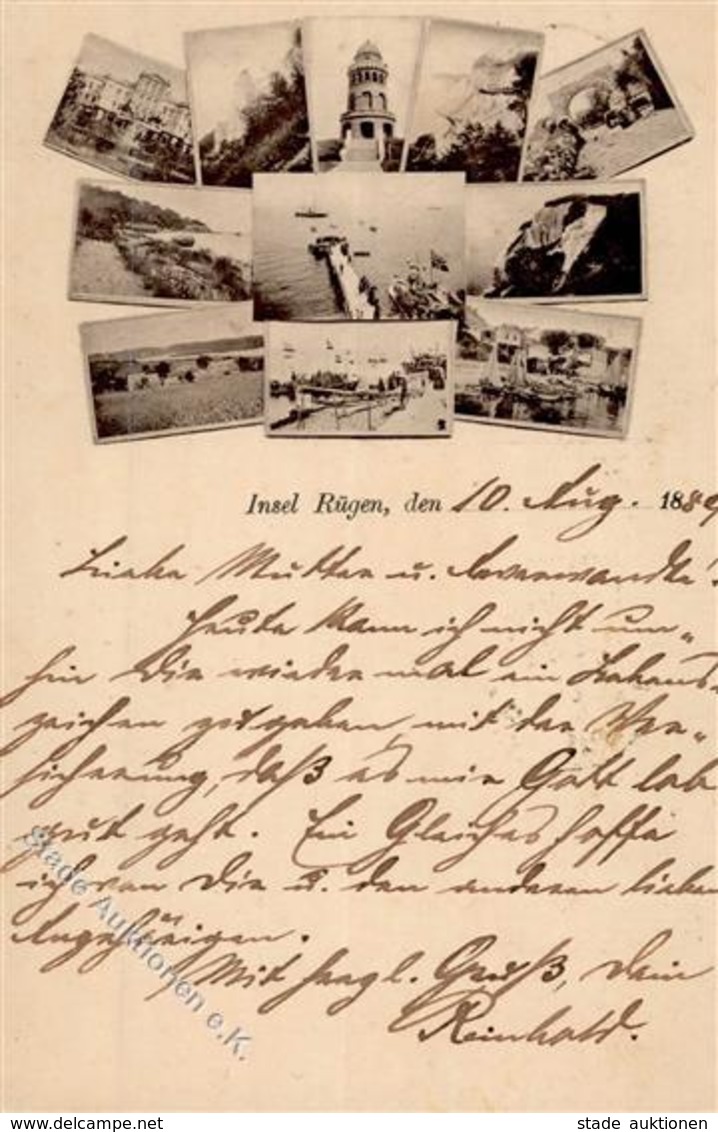 Insel Rügen, den 10. Aug. 1889
Liebe Mutter u. Anverwandte!
Heute kann ich nicht um„
hin Dir wieder mal ein Lebens-
zeichen zu geben, mit der Ver„
sicherung, daß es mir Gott lob
gut geht. Ein Gleiches hoffe
ich von Dir u. den anderen lieben
Angehörigen.
Mit herzl. Gruß, Dein
Reinhold.
Stade Auktionen e.K.
www.delcampe.net
stade auktionen